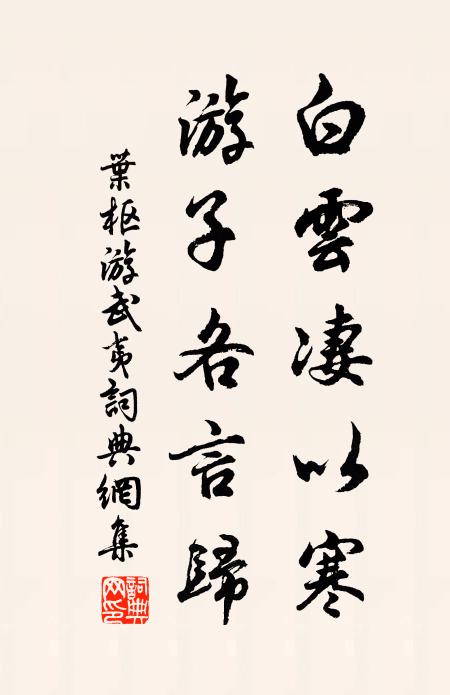 白雲凄以寒
游子各言歸
葉枢游武夷詞典網集
詞典网印